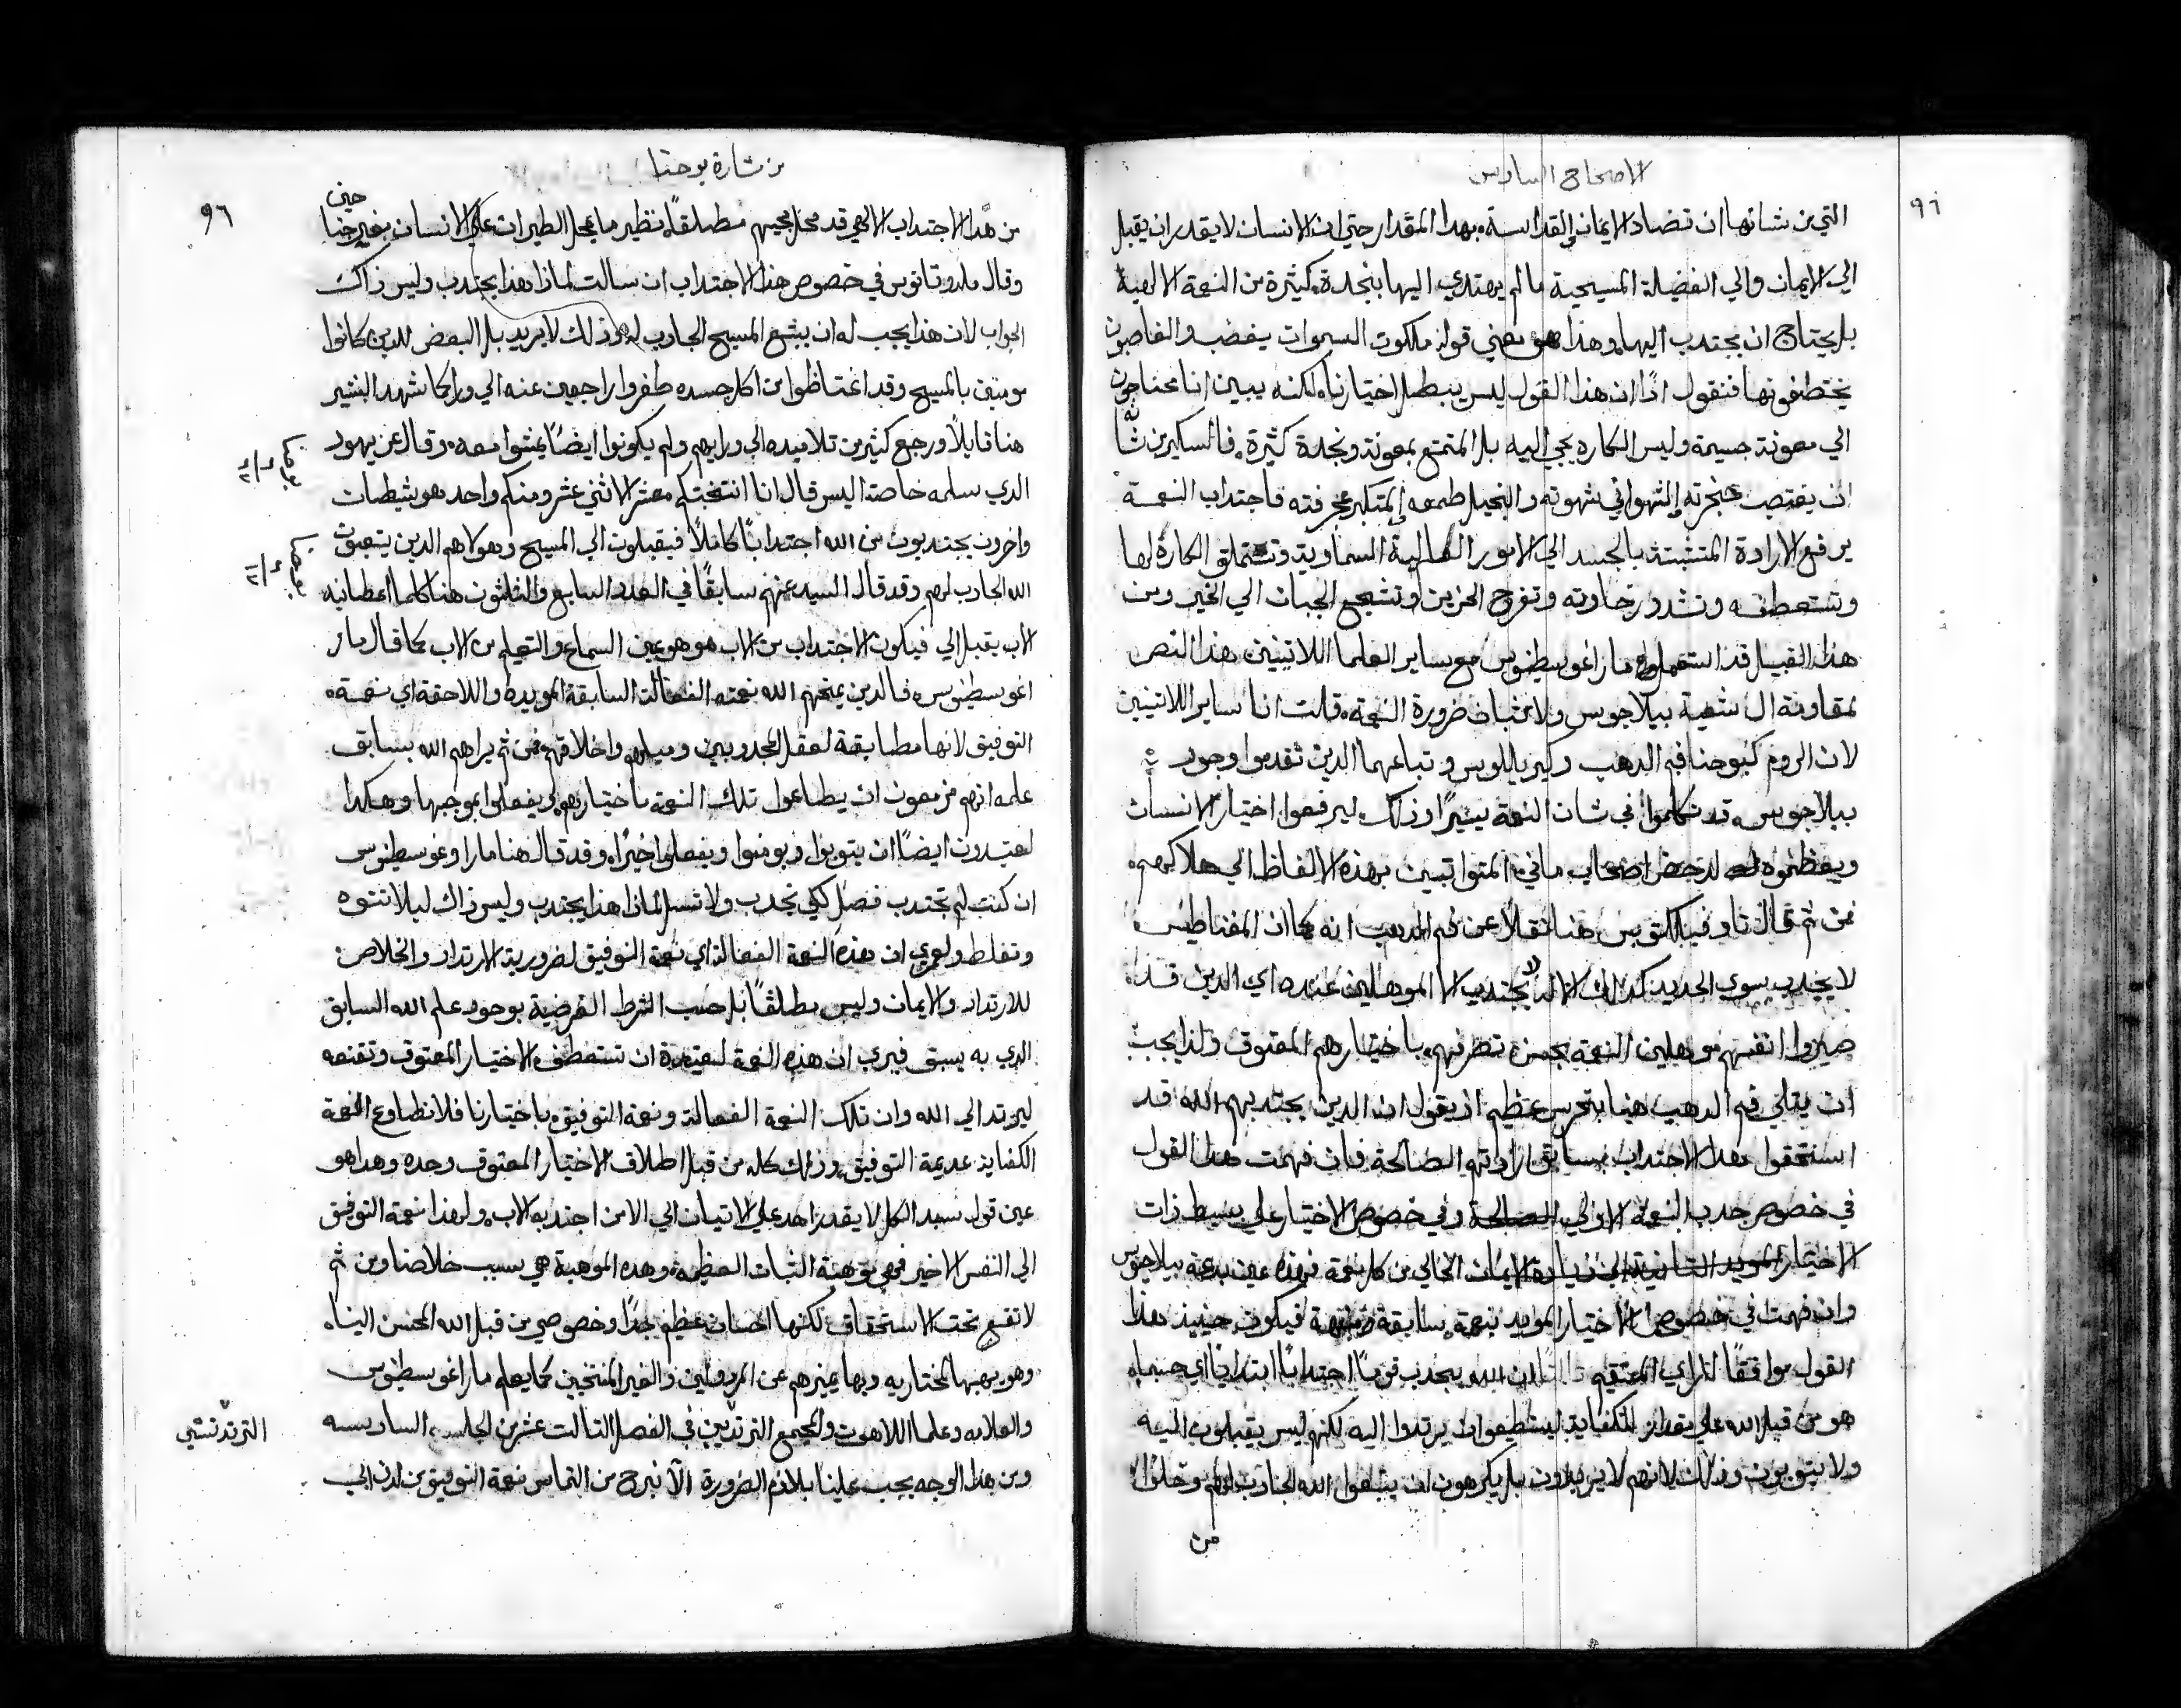 الاصحاح السادس
٩٦
التي من شانها ان تضاد الايمان والقداسة بهدا المقدار حتي ان الانسان لا يقدر ان يقبل
الي الايمان والي الفضيلة المسيحية ما لم يهتدي اليها بنجدة كثيرة من النعمة الالهية
بل يحتاج ان يجتدب اليها وهدا هو معني قوله ملكوت السموات يغضب والغاصبون
يختطفونها فنقول ادًا ان هذا القول ليس يبطل اختيارنا لكنه يبين اننا محتاجون
الي معونة جسيمة وليس الكاره يجي اليه بل المتمتع بمعونة ونجدة كثيرة فالسكير من شانه
ان يغتصب حنجرته والشهواني شهوته والبخيل طمعه والمتكبر عجرفته فاجتداب النعمة
يرفع الارادة المتشبتة بالجسد الي الامور العالية السماوية وتستملق الكارة لها
وتستعطفه وتشدد رخاوته وتفرح الحزين وتشجع الجبان الي الخير ومن
هذا القبيل قد استعمل مار اغوسطينوس مع ساير العلما اللاتينيين هذا النص
لمقاومة الـ شعية بيلاجوس ولاثبات ضرورة النعمة قلت انا ساير اللاتينيين
لان الروم كيوحنا فم الدهب وكيريللوس وتباعهما الدين تقدموا وجود
بيلاجوس قد تكلموا في شان النعمة يسيرًا وذلك ليرفعوا اختيار الانسان
ويعظموه لدحض اصحاب ماني المتواتبين بهذه الالفاظ الي هلاكهم
فمن ثم قال تاوفيلكتوس هنا نقلاً عن فم الدهب انه كما ان المغناطيس
لا يجدب سوي الحديد كذلك الاله لا يجتدب الا الموهلين عنده اي الدين قد
صيروا انفسهم موهلين النعمة بحسن تصرفهم باختيارهم المعتوق ولذا يجب
ان يتلي فم الدهب هنا بتحرس عظيم اذ يقول ان الدين يجتدبهم الله قد
استحقوا هدا الاجتداب بسابق ارادتهم الصالحة فان فهمت هدا القول
في خصوص جدب النعمة الاولي الصالحة وفي خصوص الاختيار علي بسيط ذات
الاختيار الخالي من كل نعمة فهذه عين بدعة بيلاجوس
وان فهمت في خصوص الاختيار المويد بنعمة سابقة فيكون حينيد هذا
القول موافقًا للراي المستقيم ان الله يجدب قومًا اجتدابًا ابتدايًا اي حسبما
هو من قبل الله علي مقدار الكفاية ليستطيعوا ان يرتدوا اليه لكنهم ليس يقبلون اليه
ولا يتوبون وذلك لانهم لا يريدون بل يكرهون ان يتبعوا الله الجادب لهم وتخلوا
من
من بشارة يوحنا
٩٦
من هدا الاجتداب الالهي قد محل مجيهم مطلقًا نظير ما يمحل الطيران علي الانسان بغير جناحين
وقال ملدوناتوس في خصوص هذا الاجتداب ان سالت لماذا هذا يجتدب وليس ذاك
الجواب لان هذا يجب له ان يتبع المسيح الجادب له وذلك لا يريد بل البعض للدين كانوا
مومنين بالمسيح وقد اغتاظوا من اكل جسده طفروا راجعين عنه الي ورا كما شهد البشير
هنا قايلاً ورجع كثير من تلاميده الي ورايهم ولم يكونوا ايضًا يمشوا معه وقال عن يهود
الدي سلمه خاصة اليس قال انا انتخبتكم معشر الاثني عشر ومنكم واحد هو شيطان
واخرون يجتدبون من الله اجتدابًا كاملاً فيقبلون الي المسيح وهولاهم الدين يتبعون
الله الجادب لهم وقد قال السيد عنهم سابقًا في العدد السابع والثلثون هنا كلما اعطانيه
الاب يقبل الي فيكون الاجتداب من الاب هو هو عين السماع والتعليم من الاب كما قال مار
اغوسطينوس فالدين يمنحهم الله نعمته الفعالة السابقة المويدة واللاحقة اي نعمة
التوفيق لانها مطابقة لعقل المجدوبين وميلهم واخلاقهم فمن ثم يراهم الله بسابق
علمه انهم مزمعون ان يطاعوا تلك النعمة باختيارهم لي يفعلوا بموجبها وهكدا
لعتيدون ايضًا ان يتوبوا ويومنوا ويفعلوا خيرًا وقد قال هنا مار اوغوسطينوس
ان كنت لم تجتدب فصلِ لكي تجدب ولا تسل لماذا هذا يجتدب وليس ذاك ليلا تتوه
وتغلط ولعمري ان هده النعمة الفعالة اي نعمة التوفيق لضرورية الارتداد والخلاص
للارتداد والايمان وليس مطلقًا بل حسب الشرط الفرضية بوجود علم الله السابق
الدي به يسبق فيري ان هذه النعمة لعتيدة ان تستعطف الاختيار المعتوق وتقنعه
ليرتد الي الله وان تلك النعمة الفعالة ونعمة التوفيق باختيارنا فلا نطاوع النعمة
الكفاية عديمة التوفيق وذلك كله من قبل اطلاق الاختيار المعتوق وحده وهدا هو
عين قول سيد الكل لا يقدر احد علي الاتيان الي الا من اجتدبه الاب ولهذا نعمة التوفيق
الي النفس الاخير فهي موهبة الثبات العظيمة وهده الموهبة هي سبب خلاصنا ومن ثم
لا تقع تحت الاستحقاق لكنها احسان عظيم جدًا وخصوصي من قبل الله المحسن الينا
وهو يهبها لمختاريه وبها يميزهم عن المردولين والغير المنتخبين كما يعلم مار اغوسطينوس
والعلامه وعلما اللاهوت والمجمع التريدنتيني في الفصل التالت عشر من الجلسة السادسه
ومن هدا الوجه يجب علينا بلازم الضرورة الا نبرح من التماس نعمة التوفيق من لدن الله
يوحنا
٦
يوحنا
٦
التريدنتيني